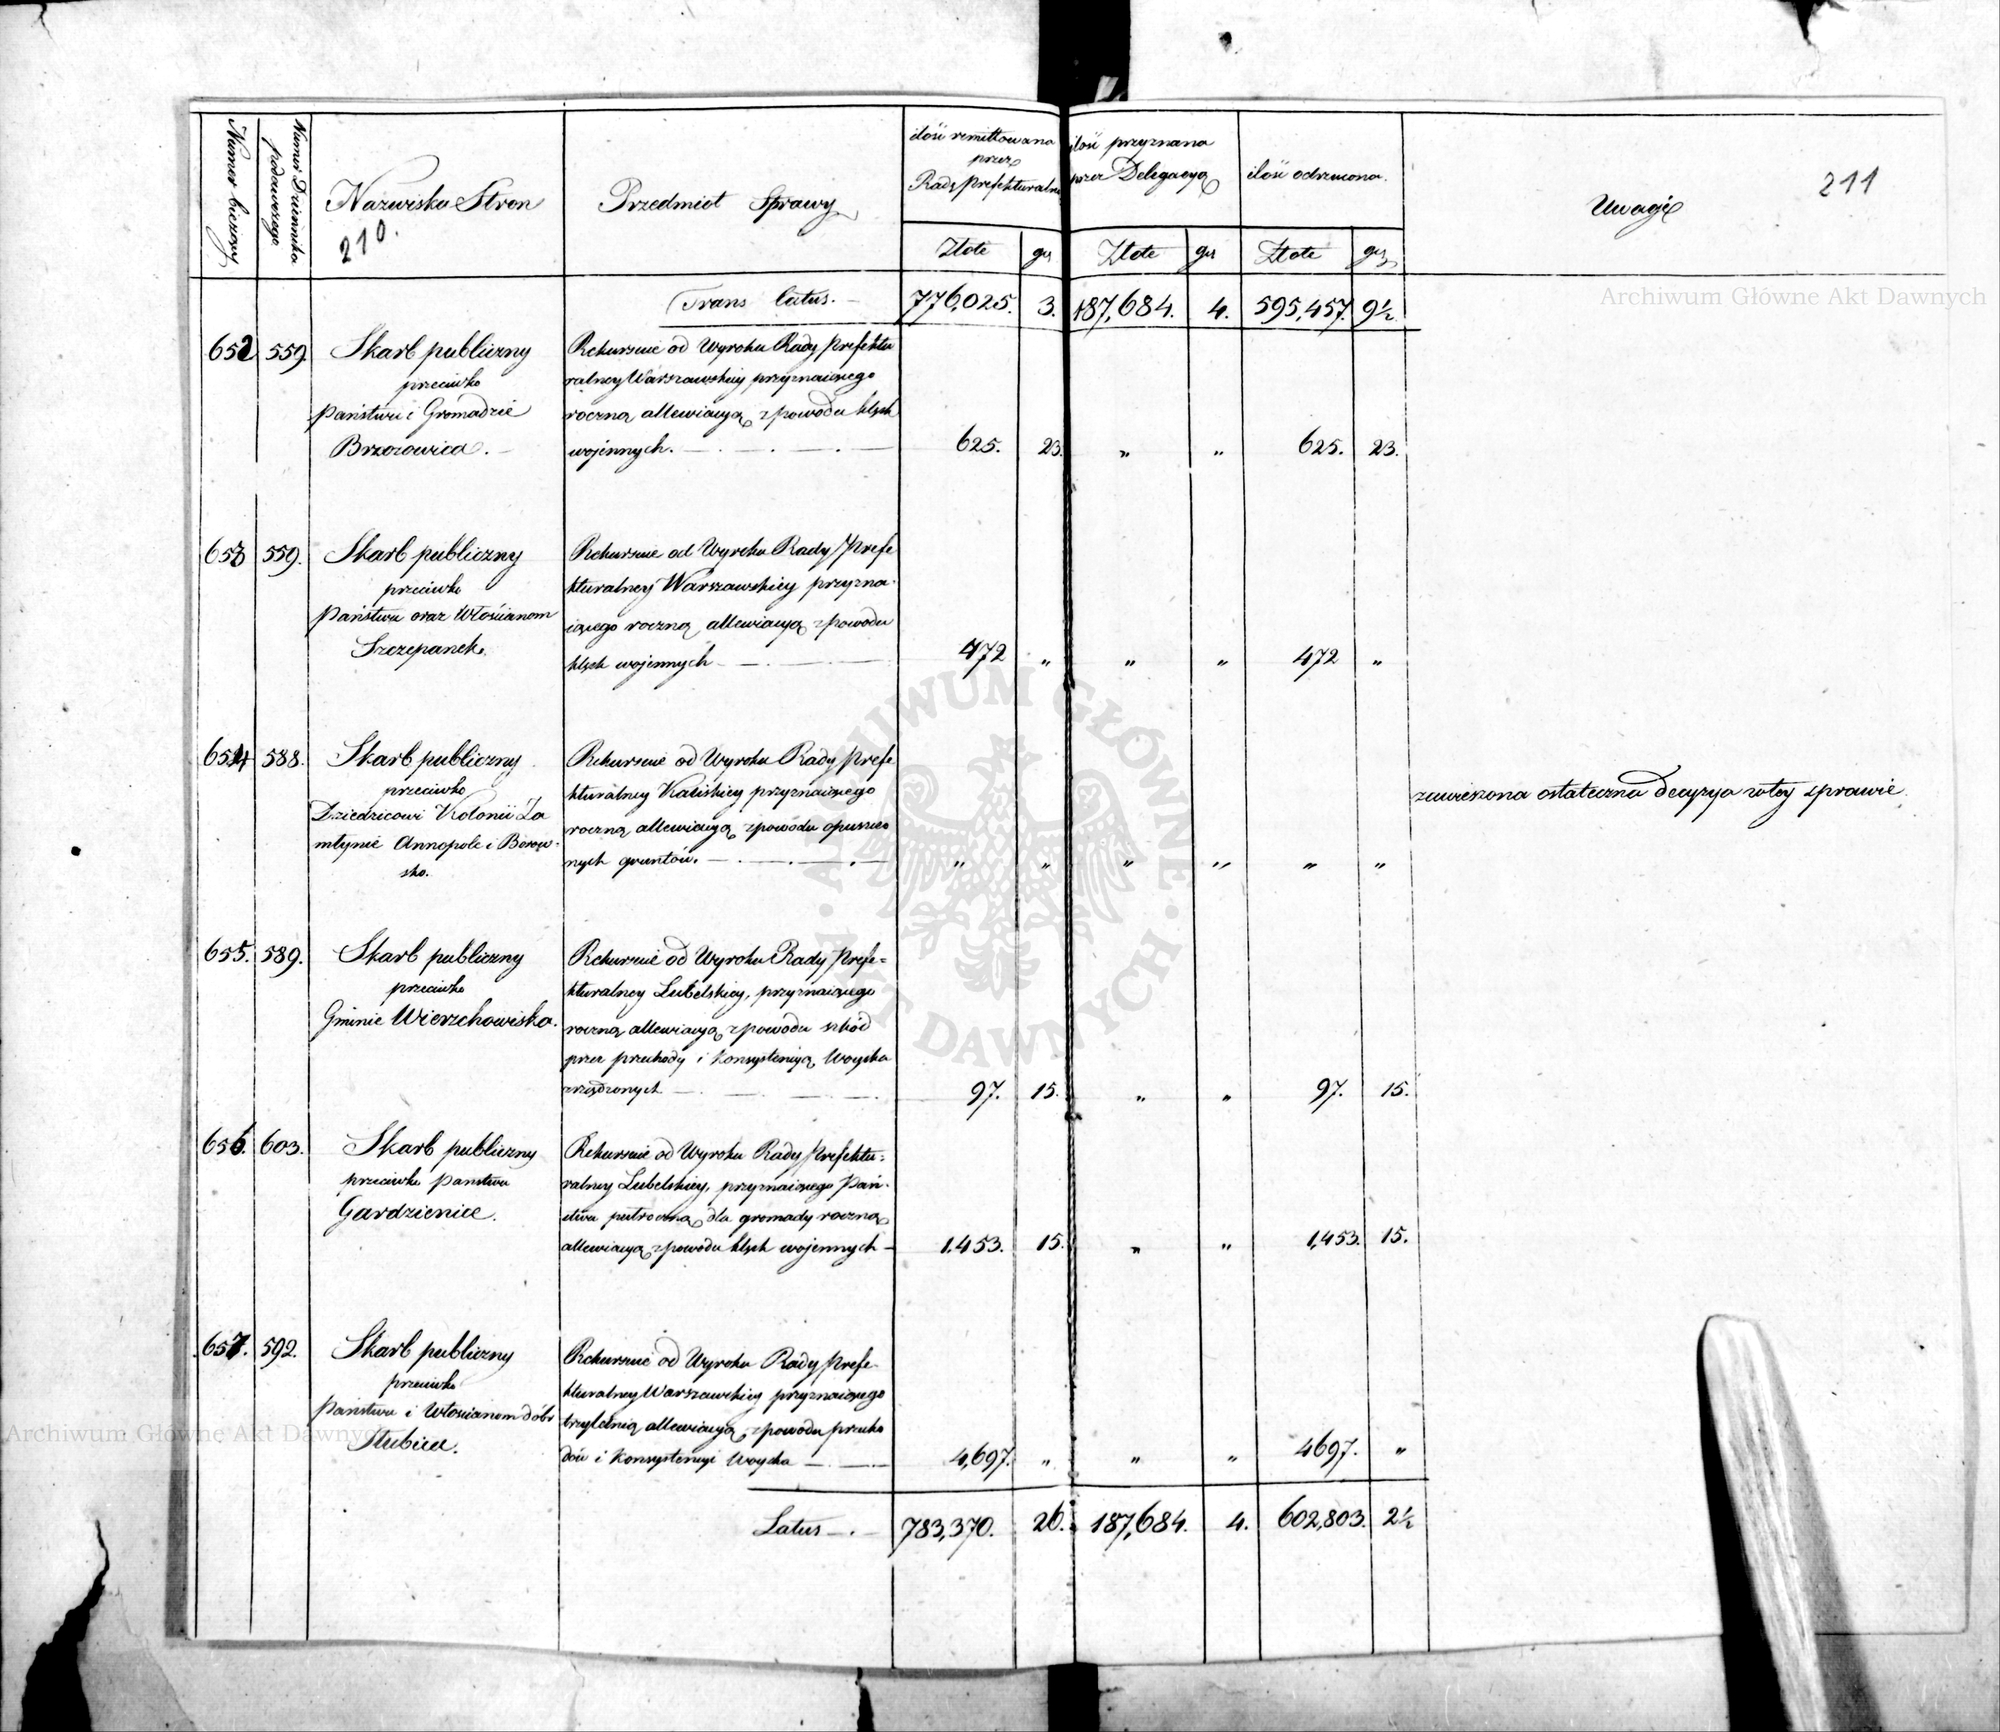 Numer bieżący
Numer Dziennika podawczego
Nazwiska Stron
210.
Przedmiot Sprawy
ilość remittowana
przez
Radę Prefekturalną
ilość przyznana
przez Delegacyą
ilość odrzucona.
Uwagi
211
Złote gr Złote gr Złote gr
Trans latus. 776,025. 3. 187,684. 4. 595,457. 9½
Archiwum Główne Akt Dawnych
652 559 Skarb publiczny
przeciwko
Państwu i Gromadzie
Brzozowica.
Rekursuie od Wyroku Rady Prefektu
ralney Warszawskiey przyznaiącego
roczną allewiacyą z powodu klęsk
wojennych. 625. 23. " " 625. 23.
653 559. Skarb publiczny
przeciwko
Państwu oraz Włościanom
Szczepanek.
Rekursuie od Wyroku Rady Prefe
kturalney Warszawskiey przyzna-
iącego roczną allewiacyą z powodu
klęsk wojennych 472 " " " 472 "
654 588. Skarb publiczny
przeciwko
Dziedzicowi Kolonii Za
młynie Annopole i Borow-
sko.
Rekursuie od Wyroku Rady Prefe
kturalney Kaliskiey przyznaiącego
roczną allewiacyą z powodu opuszczo
nych gruntów. " " " " " "
zawieszona ostateczna decyzya w tey sprawie
655. 589. Skarb publiczny
przeciwko
Gminie Wierzchowiska.
Rekursuie od Wyroku Rady Prefe=
kturalney Lubelskiey, przyznaiącego
roczną allewiacyą z powodu szkód
przez przechody i konsystencyą Woyska
zrządzonych 97. 15. " " 97. 15.
656. 603. Skarb publiczny
przeciwko Państwu
Gardzienice.
Rekursuie od Wyroku Rady Prefektu=
ralney Lubelskiey, przyznaiącego Pań-
stwu półroczną dla gromady roczną
allewiacyą z powodu klęsk wojennych 1,453. 15. " " 1,453. 15.
657. 592. Skarb publiczny
przeciwko
Państwu i Włościanom dóbr
Słubica.
Rekursuie od Wyroku Rady Prefe-
kturalney Warszawskiey przyznaiącego
trzyletnią allewiacyą z powodu przecho
dów i konsystencyi Woyska 4,697. " " " 4697. "
Latus 783,370. 26. 187,684. 4. 602,803. 2½
Archiwum Główne Akt Dawnych
ARCHIWUM GŁÓWNE · AKT DAWNYCH ·